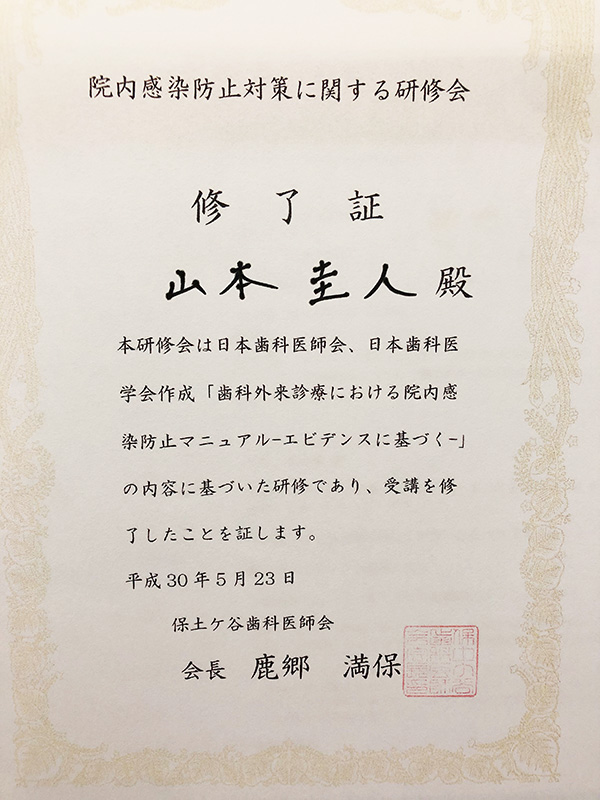 院内感染防止対策に関する研修会
修了証
山本 圭人 殿
本研修会は日本歯科医師会、日本歯科医
学会作成「歯科外来診療における院内感
染防止マニュアル−エビデンスに基づく−」
の内容に基づいた研修であり、受講を修
了したことを証します。
平成30年5月23日
保土ケ谷歯科医師会
会長 鹿郷 満保